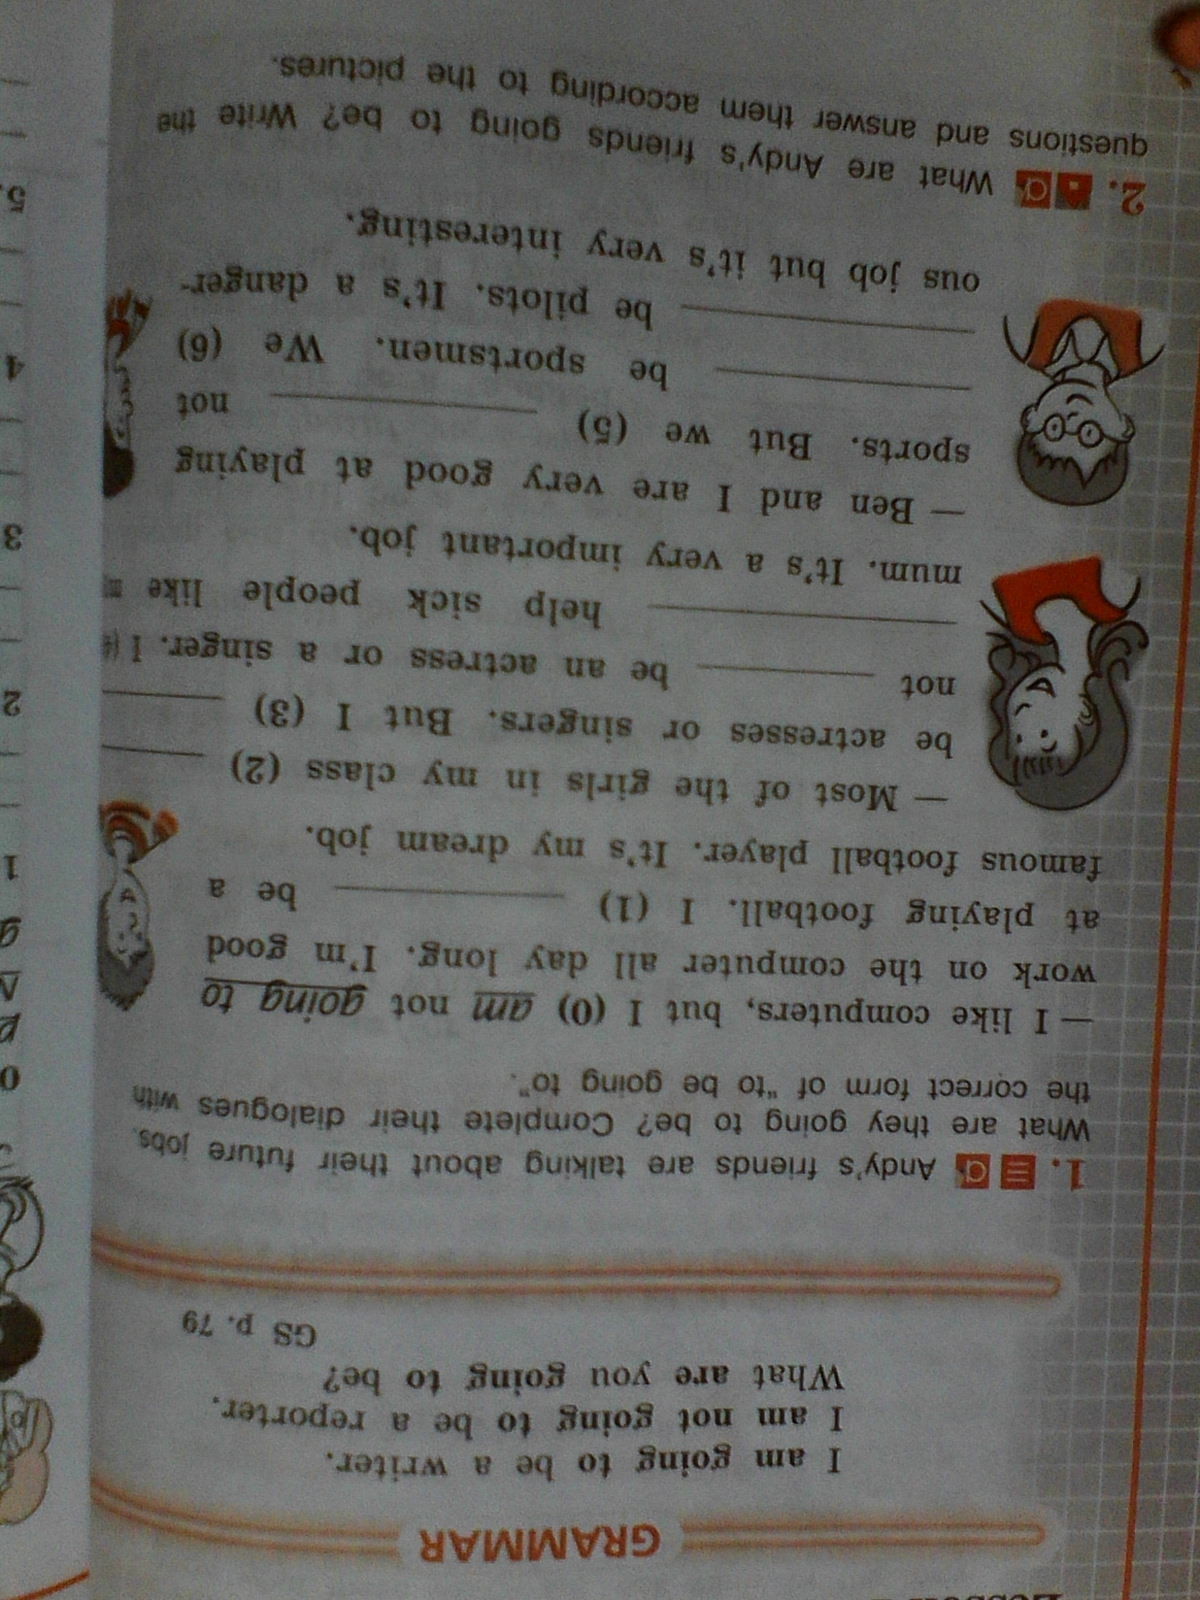 GRAMMAR
I am going to be a writer.
I am not going to be a reporter.
What are you going to be?
GS p. 79
1. Andy's friends are talking about their future jobs.
What are they going to be? Complete their dialogues with
the correct form of "to be going to".
— I like computers, but I (0) am not going to
work on the computer all day long. I'm good
at playing football. I (1) ____ be a
famous football player. It's my dream job.
— Most of the girls in my class (2) ____
be actresses or singers. But I (3) ____
not ____ be an actress or a singer. I (4)
____ help sick people like
mum. It's a very important job.
— Ben and I are very good at playing
sports. But we (5) ____ not
____ be sportsmen. We (6)
____ be pilots. It's a danger-
ous job but it's very interesting.
2. What are Andy's friends going to be? Write the
questions and answer them according to the pictures.
0
1
2
3
4
5.